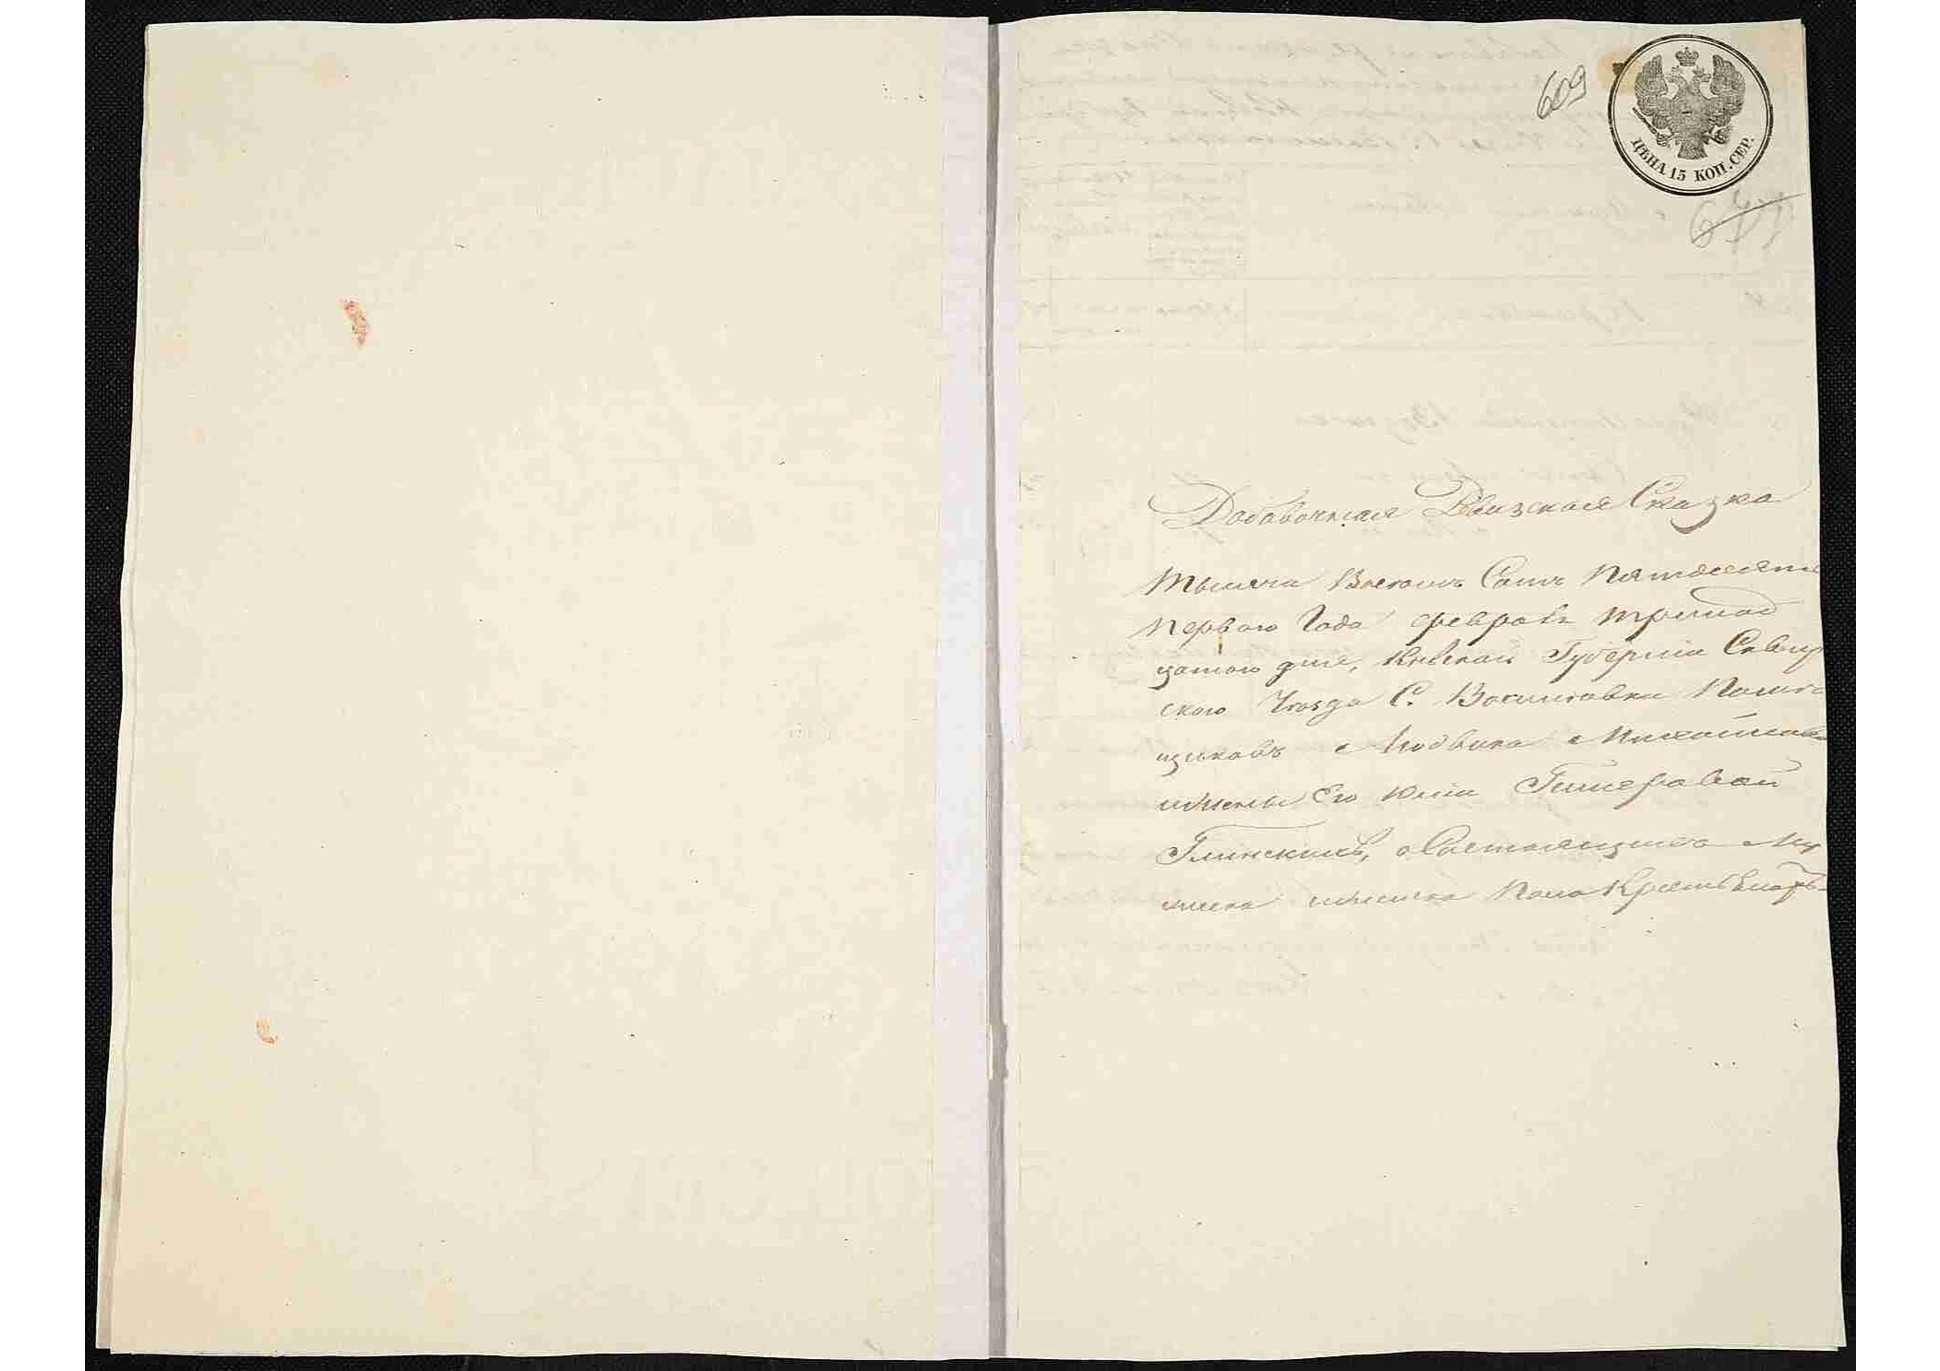 609
ЦѢНА 15 КОП. СЕР.
Добавочная Ревизская Сказка
Тысяча Восемь Сотъ Пятдесятъ
Первого Года Февраля тринад
цатого дня, Киевской Губернии Сквир
ского Уезда С. Василювки Помѣ
щиковъ Людвика Михайлова
и жены Его Юлии
Глинскихъ, о Состоящихъ Му
жеска и женска Пола Крестьянахъ